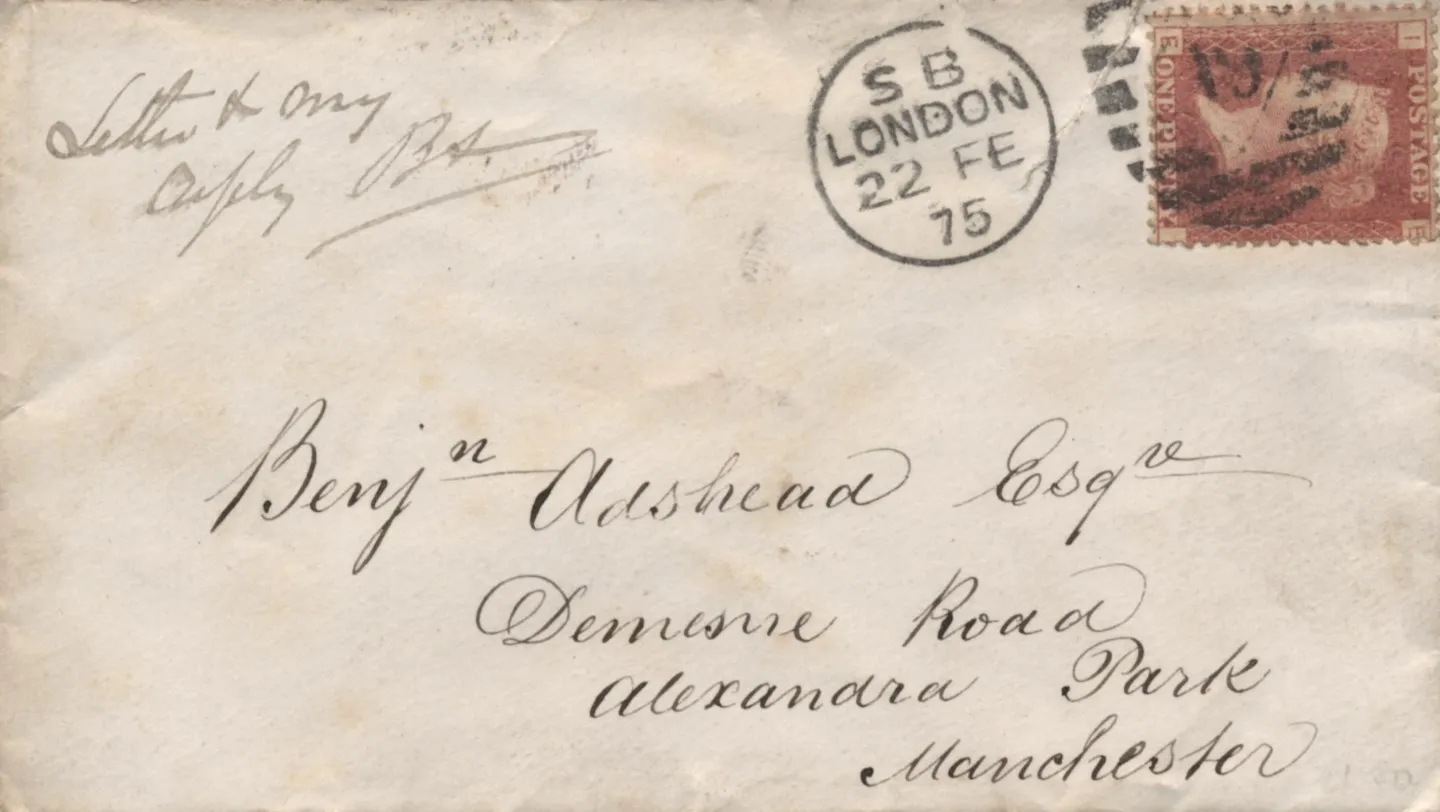 Letter & my
reply BA.
S B
LONDON
22 FE
75
E
I
ONE PENNY
POSTAGE
I
E
Benjn Adshead Esqre
Demesne Road
Alexandra Park
Manchester